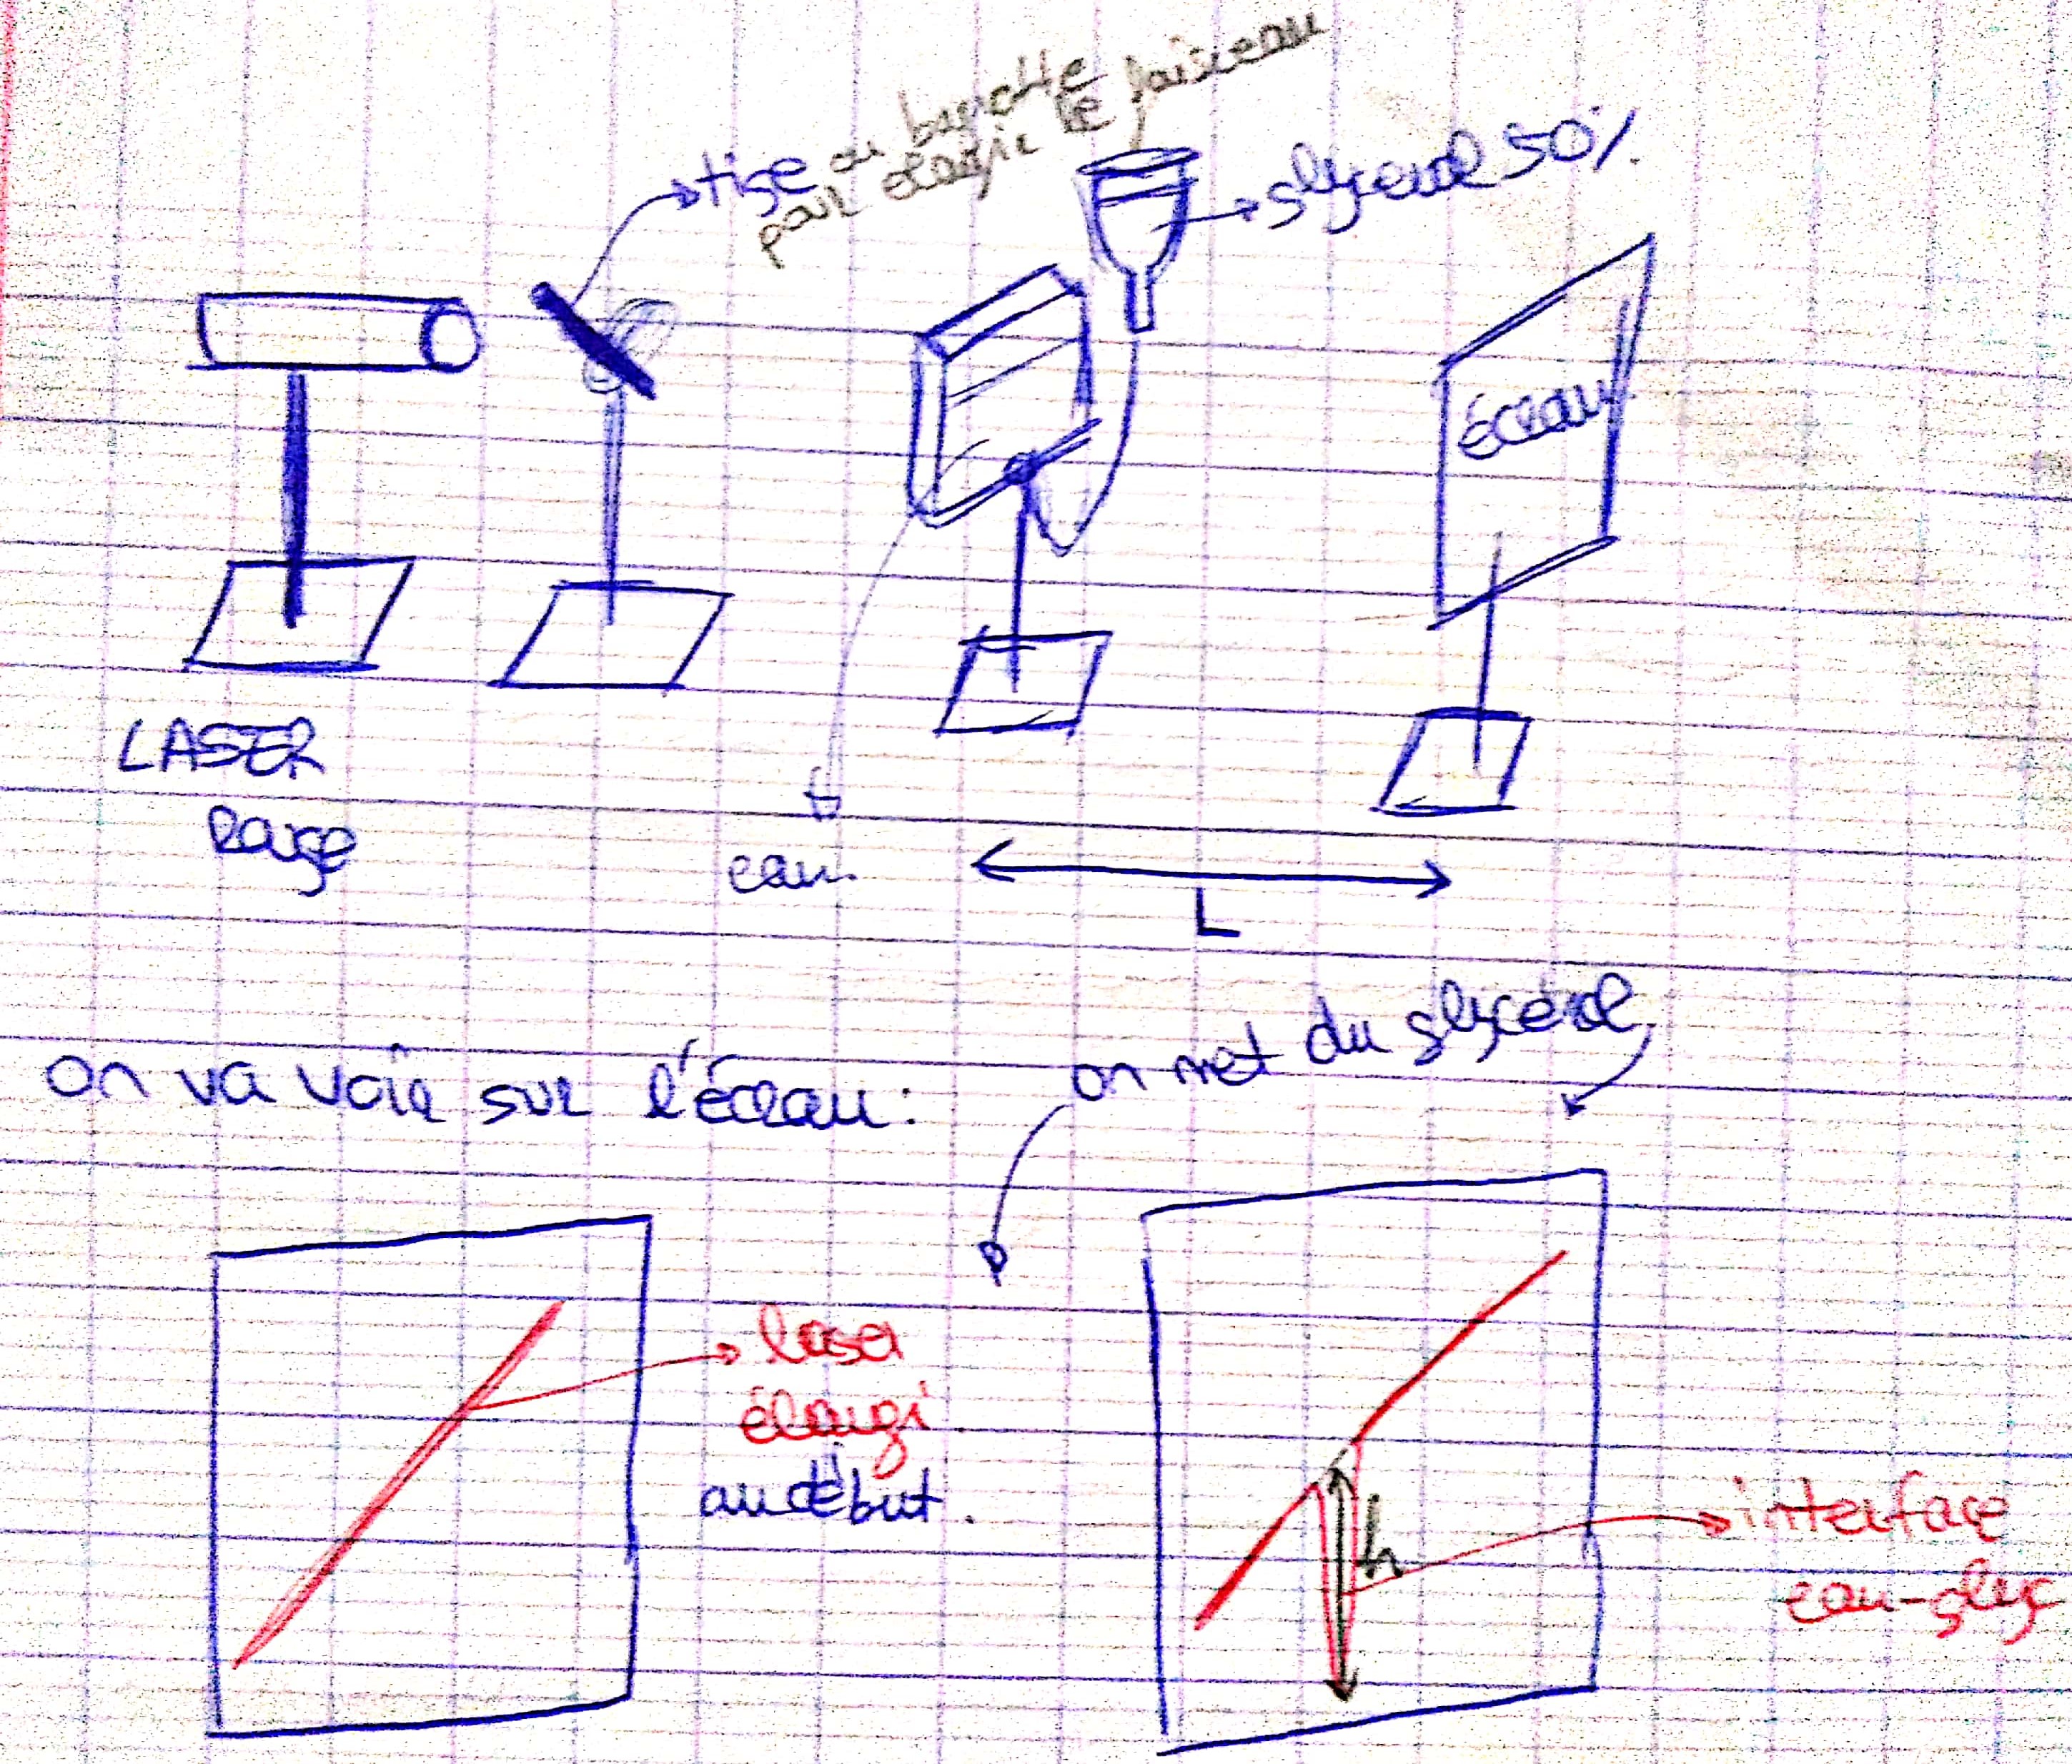 tige ou baguette
pour élargir le faisceau
glycerol 50%.
écran
LASER
Rouge
eau.
L
on va voir sur l'écran:
on met du glycerol
laser
élargi
au début.
h
interface
eau-glyc